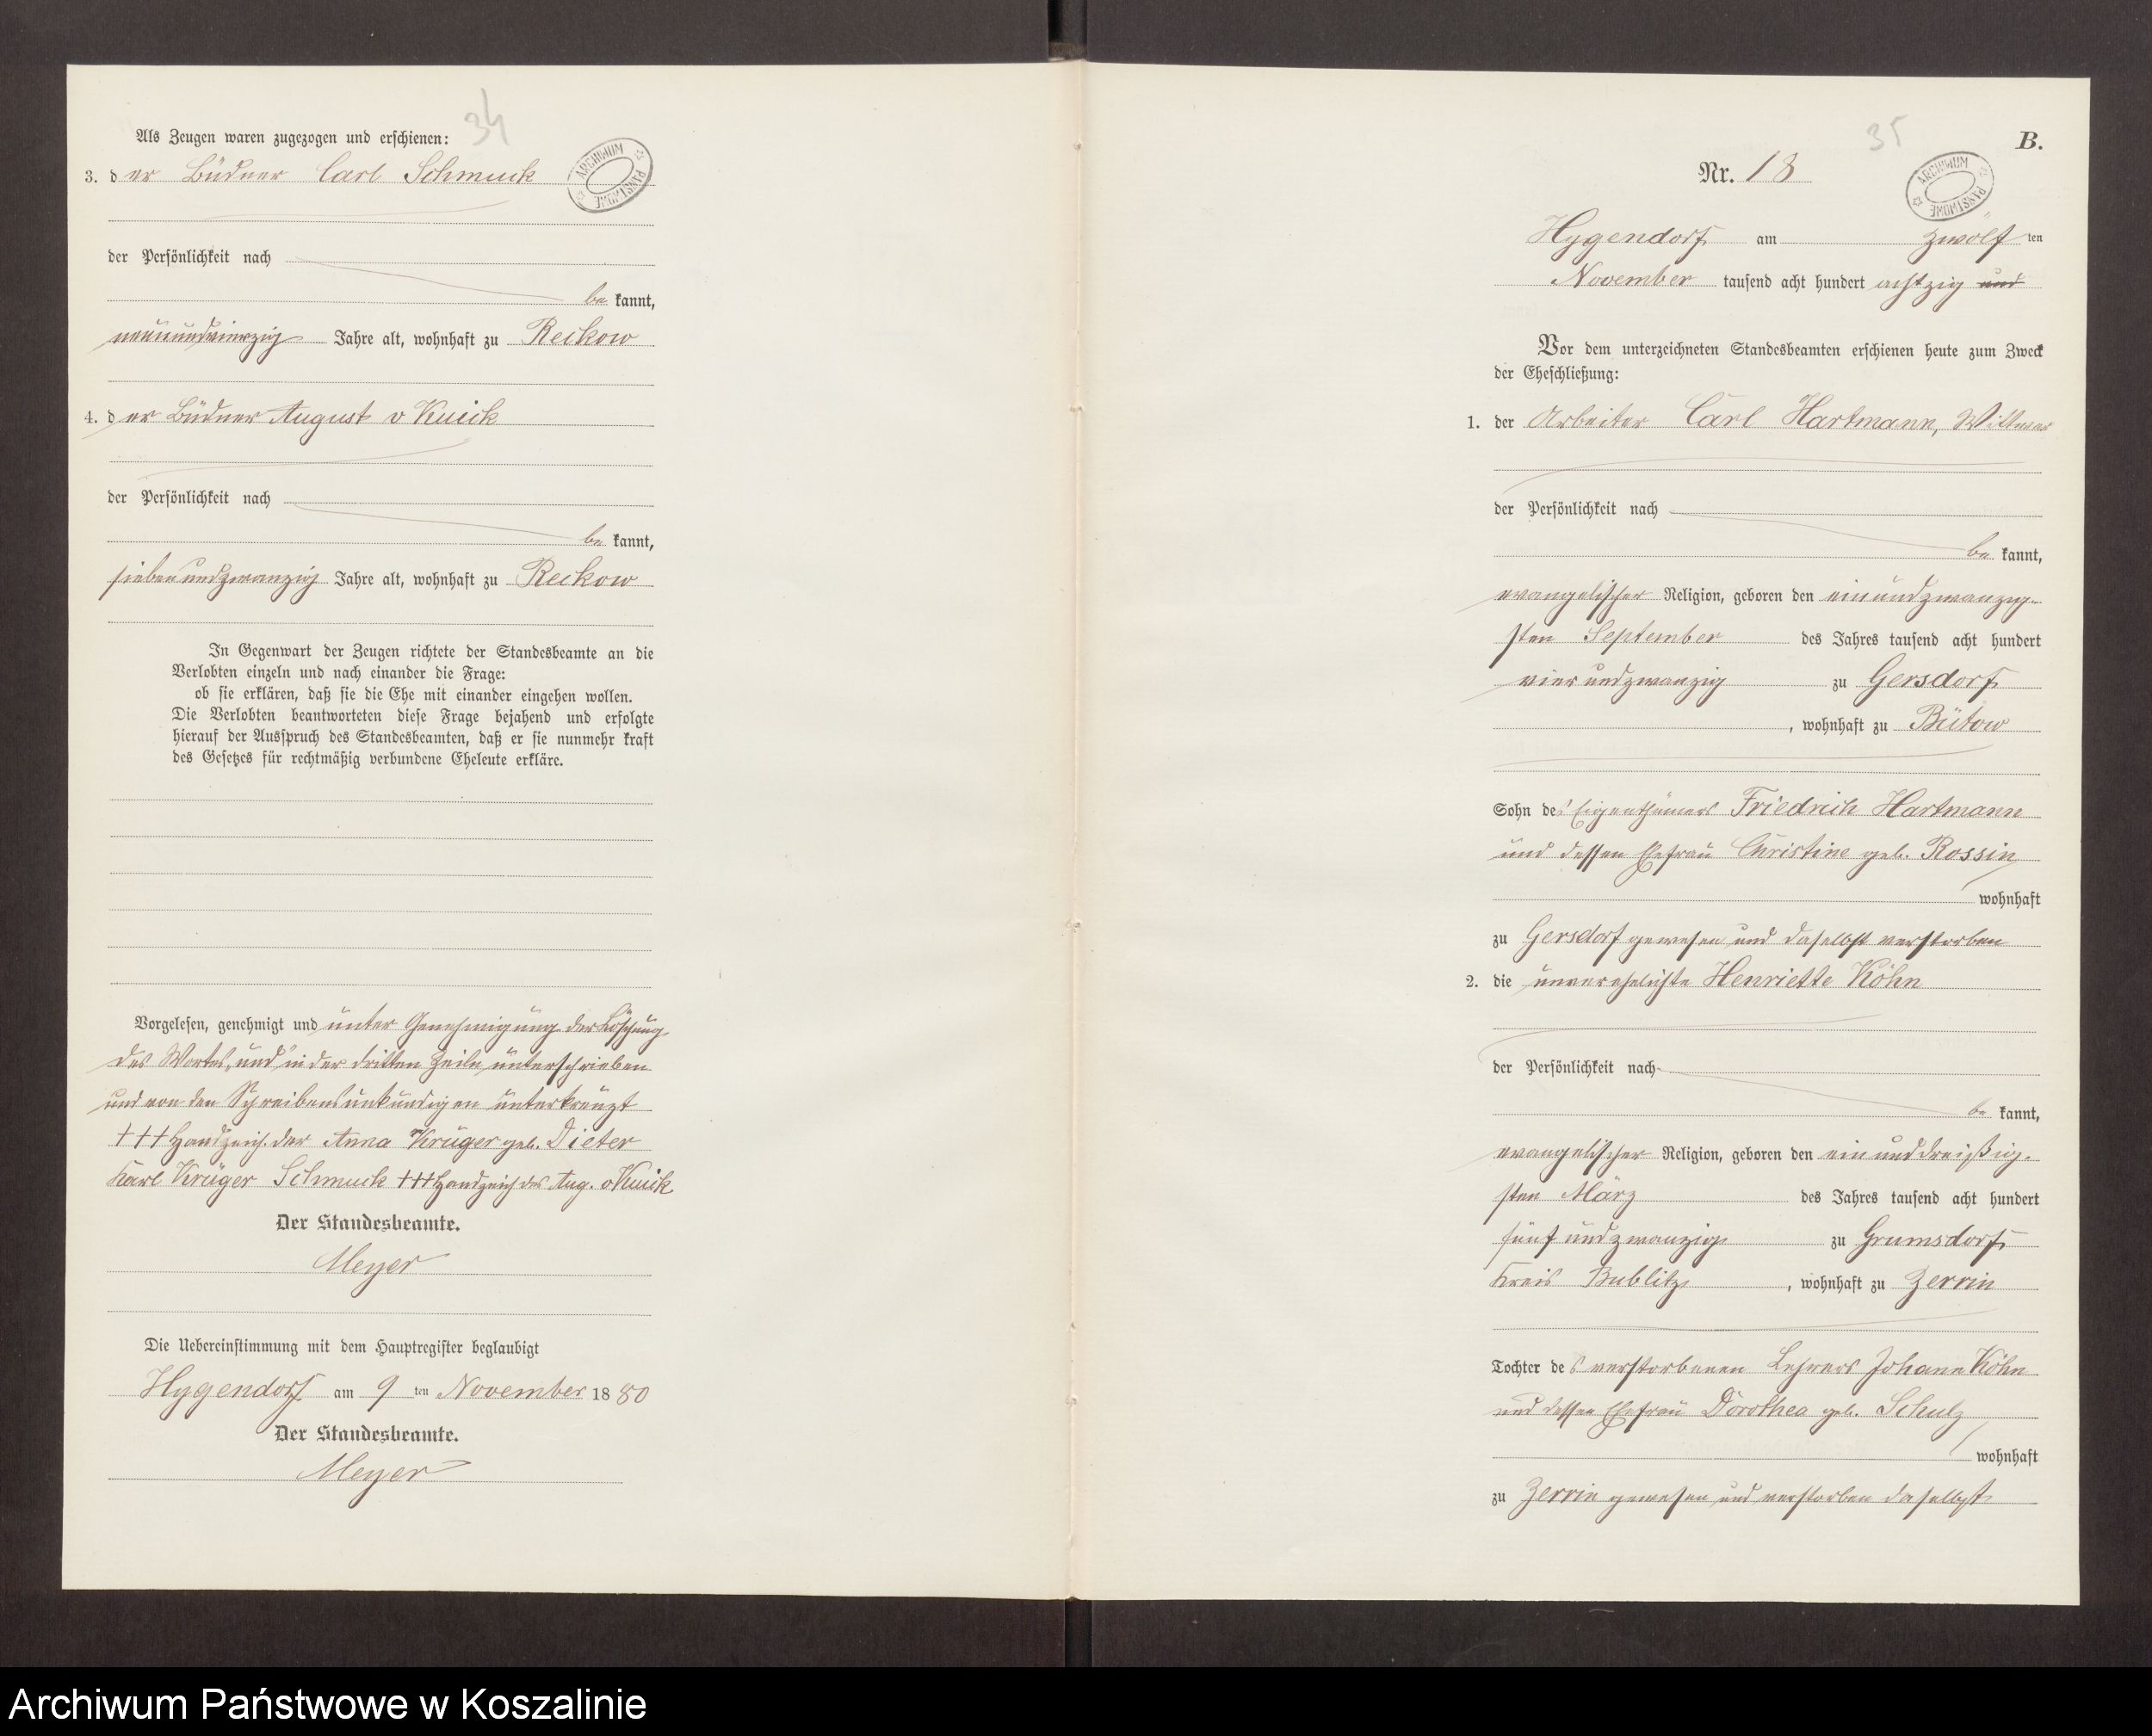 34
Als Zeugen waren zugezogen und erschienen:
3. der Büdner Carl Schmuck
ARCHIWUM PAŃSTWOWE
der Persönlichkeit nach
bekannt,
neunundvierzig Jahre alt, wohnhaft zu Reckow
4. der Büdner August v Kuick
der Persönlichkeit nach
bekannt,
siebenundzwanzig Jahre alt, wohnhaft zu Reckow
In Gegenwart der Zeugen richtete der Standesbeamte an die
Verlobten einzeln und nach einander die Frage:
ob sie erklären, daß sie die Ehe mit einander eingehen wollen.
Die Verlobten beantworteten diese Frage bejahend und erfolgte
hierauf der Ausspruch des Standesbeamten, daß er sie nunmehr kraft
des Gesetzes für rechtmäßig verbundene Eheleute erkläre.
Vorgelesen, genehmigt und unter Genehmigung der Löschung
des Wortes „und" in der dritten Zeile unterschrieben
und von den Schreibensunkundigen unterkreuzt
+++ Handzeich. der Anna Krüger geb. Dieter
Karl Krüger Schmuck +++ Handzeich des Aug. v Kuick
Der Standesbeamte.
Meyer
Die Uebereinstimmung mit dem Hauptregister beglaubigt
Hygendorf am 9 ten November 1880
Der Standesbeamte.
Meyer
35
B.
Nr. 18
ARCHIWUM PAŃSTWOWE
Hygendorf am zwölf ten
November tausend acht hundert achtzig und
Vor dem unterzeichneten Standesbeamten erschienen heute zum Zweck
der Eheschließung:
1. der Arbeiter Carl Hartmann, Wittwer
der Persönlichkeit nach
bekannt,
evangelischer Religion, geboren den einundzwanzig-
sten September des Jahres tausend acht hundert
vierundzwanzig zu Gersdorf
, wohnhaft zu Bütow
Sohn des Eigenthümers Friedrich Hartmann
und dessen Ehefrau Christine geb. Rossin
wohnhaft
zu Gersdorf gewesen und daselbst verstorben
2. die unverehelichte Henriette Köhn
der Persönlichkeit nach
bekannt,
evangelischer Religion, geboren den einunddreißig-
sten März des Jahres tausend acht hundert
fünfundzwanzig zu Grumsdorf
Kreis Bublitz, wohnhaft zu Zerrin
Tochter des verstorbenen Lehrers Johann Köhn
und dessen Ehefrau Dorothea geb. Schulz
wohnhaft
zu Zerrin gewesen und verstorben daselbst
Archiwum Państwowe w Koszalinie